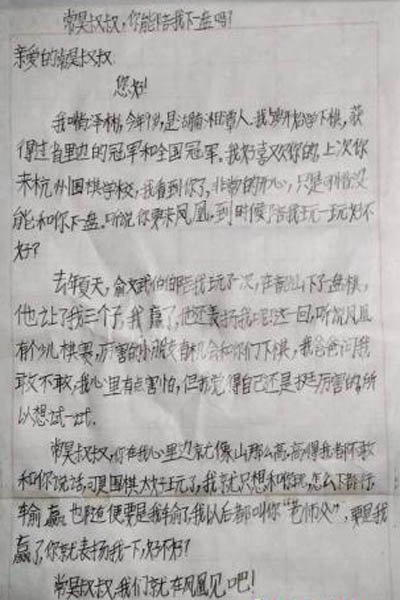 常昊叔叔，你能陪我下一盘吗？
亲爱的常昊叔叔：
您好！
我叫梅泽彬，今年，是湖南湘潭人。我岁开始学下棋，获
得过省里边的冠军和全国冠军。我好喜欢你的，上次你
来杭州国棋学校，我看到你了，非常的开心，只是可惜没
能和你下一盘。听说你要来凤凰，到时候陪我玩一玩好不
好？
去年夏天，俞斌伯伯陪我玩了一次，在韶山下了一盘棋，
他让了我三个子，我赢了，他还表扬我呢！这一回，听说凤凰
有少儿棋赛，厉害的小朋友有机会和你们下棋，我爸爸问我
敢不敢，我心里有点害怕，但我觉得自己还是挺厉害的，所
以想试一试。
常昊叔叔，你在我心里边就像山那么高，高得我都不敢
和你说话，可是围棋太好玩了，我就只想和你玩，怎么下都行，
输赢也随便，要是我输了，我以后都叫你“老师父”，要是我
赢了，你就表扬我一下，好不好？
常昊叔叔，我们就在凤凰见吧！